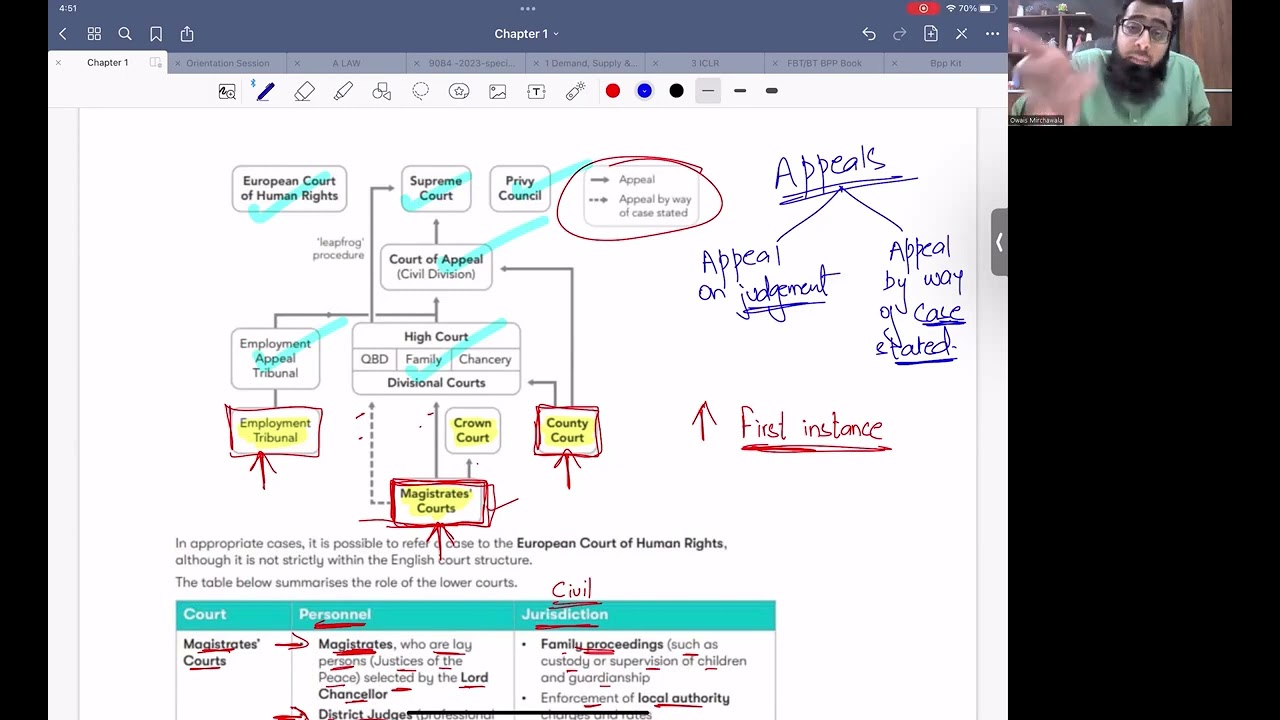 4:51
70%
Chapter 1
Chapter 1
Orientation Session
A LAW
9084 -2023-speci...
1 Demand, Supply &...
3 ICLR
FBT/BT BPP Book
Bpp Kit
Owais Mirchawala
European Court
of Human Rights
Supreme
Court
Privy
Council
Appeal
Appeal by way
of case stated
'leapfrog'
procedure
Court of Appeal
(Civil Division)
Employment
Appeal
Tribunal
High Court
QBD
Family
Chancery
Divisional Courts
Employment
Tribunal
Crown
Court
County
Court
Magistrates'
Courts
Appeals
Appeal
on judgement
Appeal
by way
of case
stated
First instance
In appropriate cases, it is possible to refer a case to the European Court of Human Rights,
although it is not strictly within the English court structure.
The table below summarises the role of the lower courts.
Civil
Court
Personnel
Jurisdiction
Magistrates'
Courts
Magistrates, who are lay
persons (Justices of the
Peace) selected by the Lord
Chancellor
District Judges (professional
• Family proceedings (such as
custody or supervision of children
and guardianship
• Enforcement of local authority
charges and rates